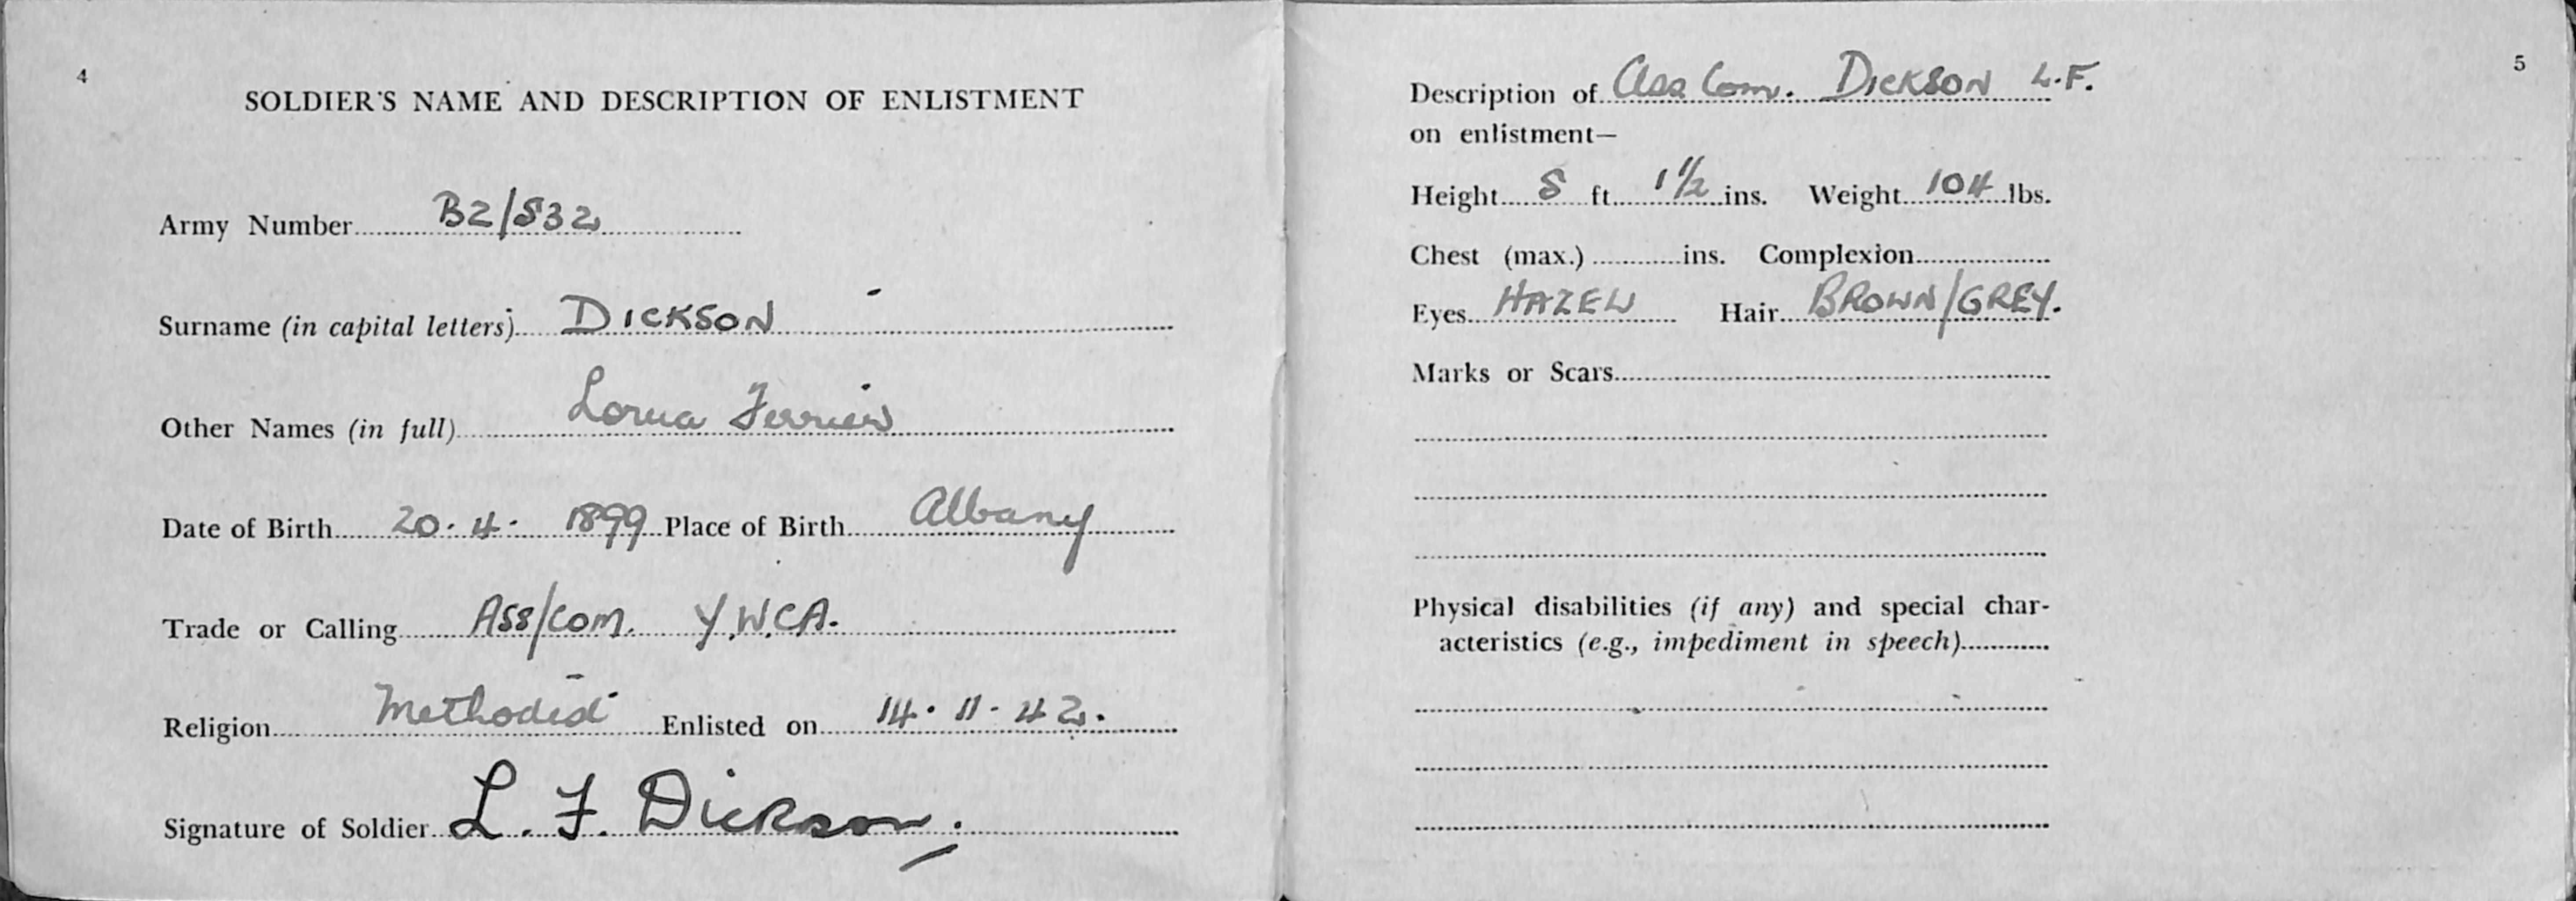 4
SOLDIER'S NAME AND DESCRIPTION OF ENLISTMENT
Army Number B2/532
Surname (in capital letters) DICKSON
Other Names (in full) Lorna Ferrier
Date of Birth 20.4.1899 Place of Birth Albany
Trade or Calling Ass/Com. Y.W.C.A.
Religion Methodist Enlisted on 14.11.42.
Signature of Soldier L. F. Dickson.
5
Description of Ass Com. DICKSON L.F.
on enlistment—
Height 5 ft. 1 1/2 ins. Weight 104 lbs.
Chest (max.) ins. Complexion
Eyes HAZEL Hair BROWN/GREY.
Marks or Scars
Physical disabilities (if any) and special char-
acteristics (e.g., impediment in speech)